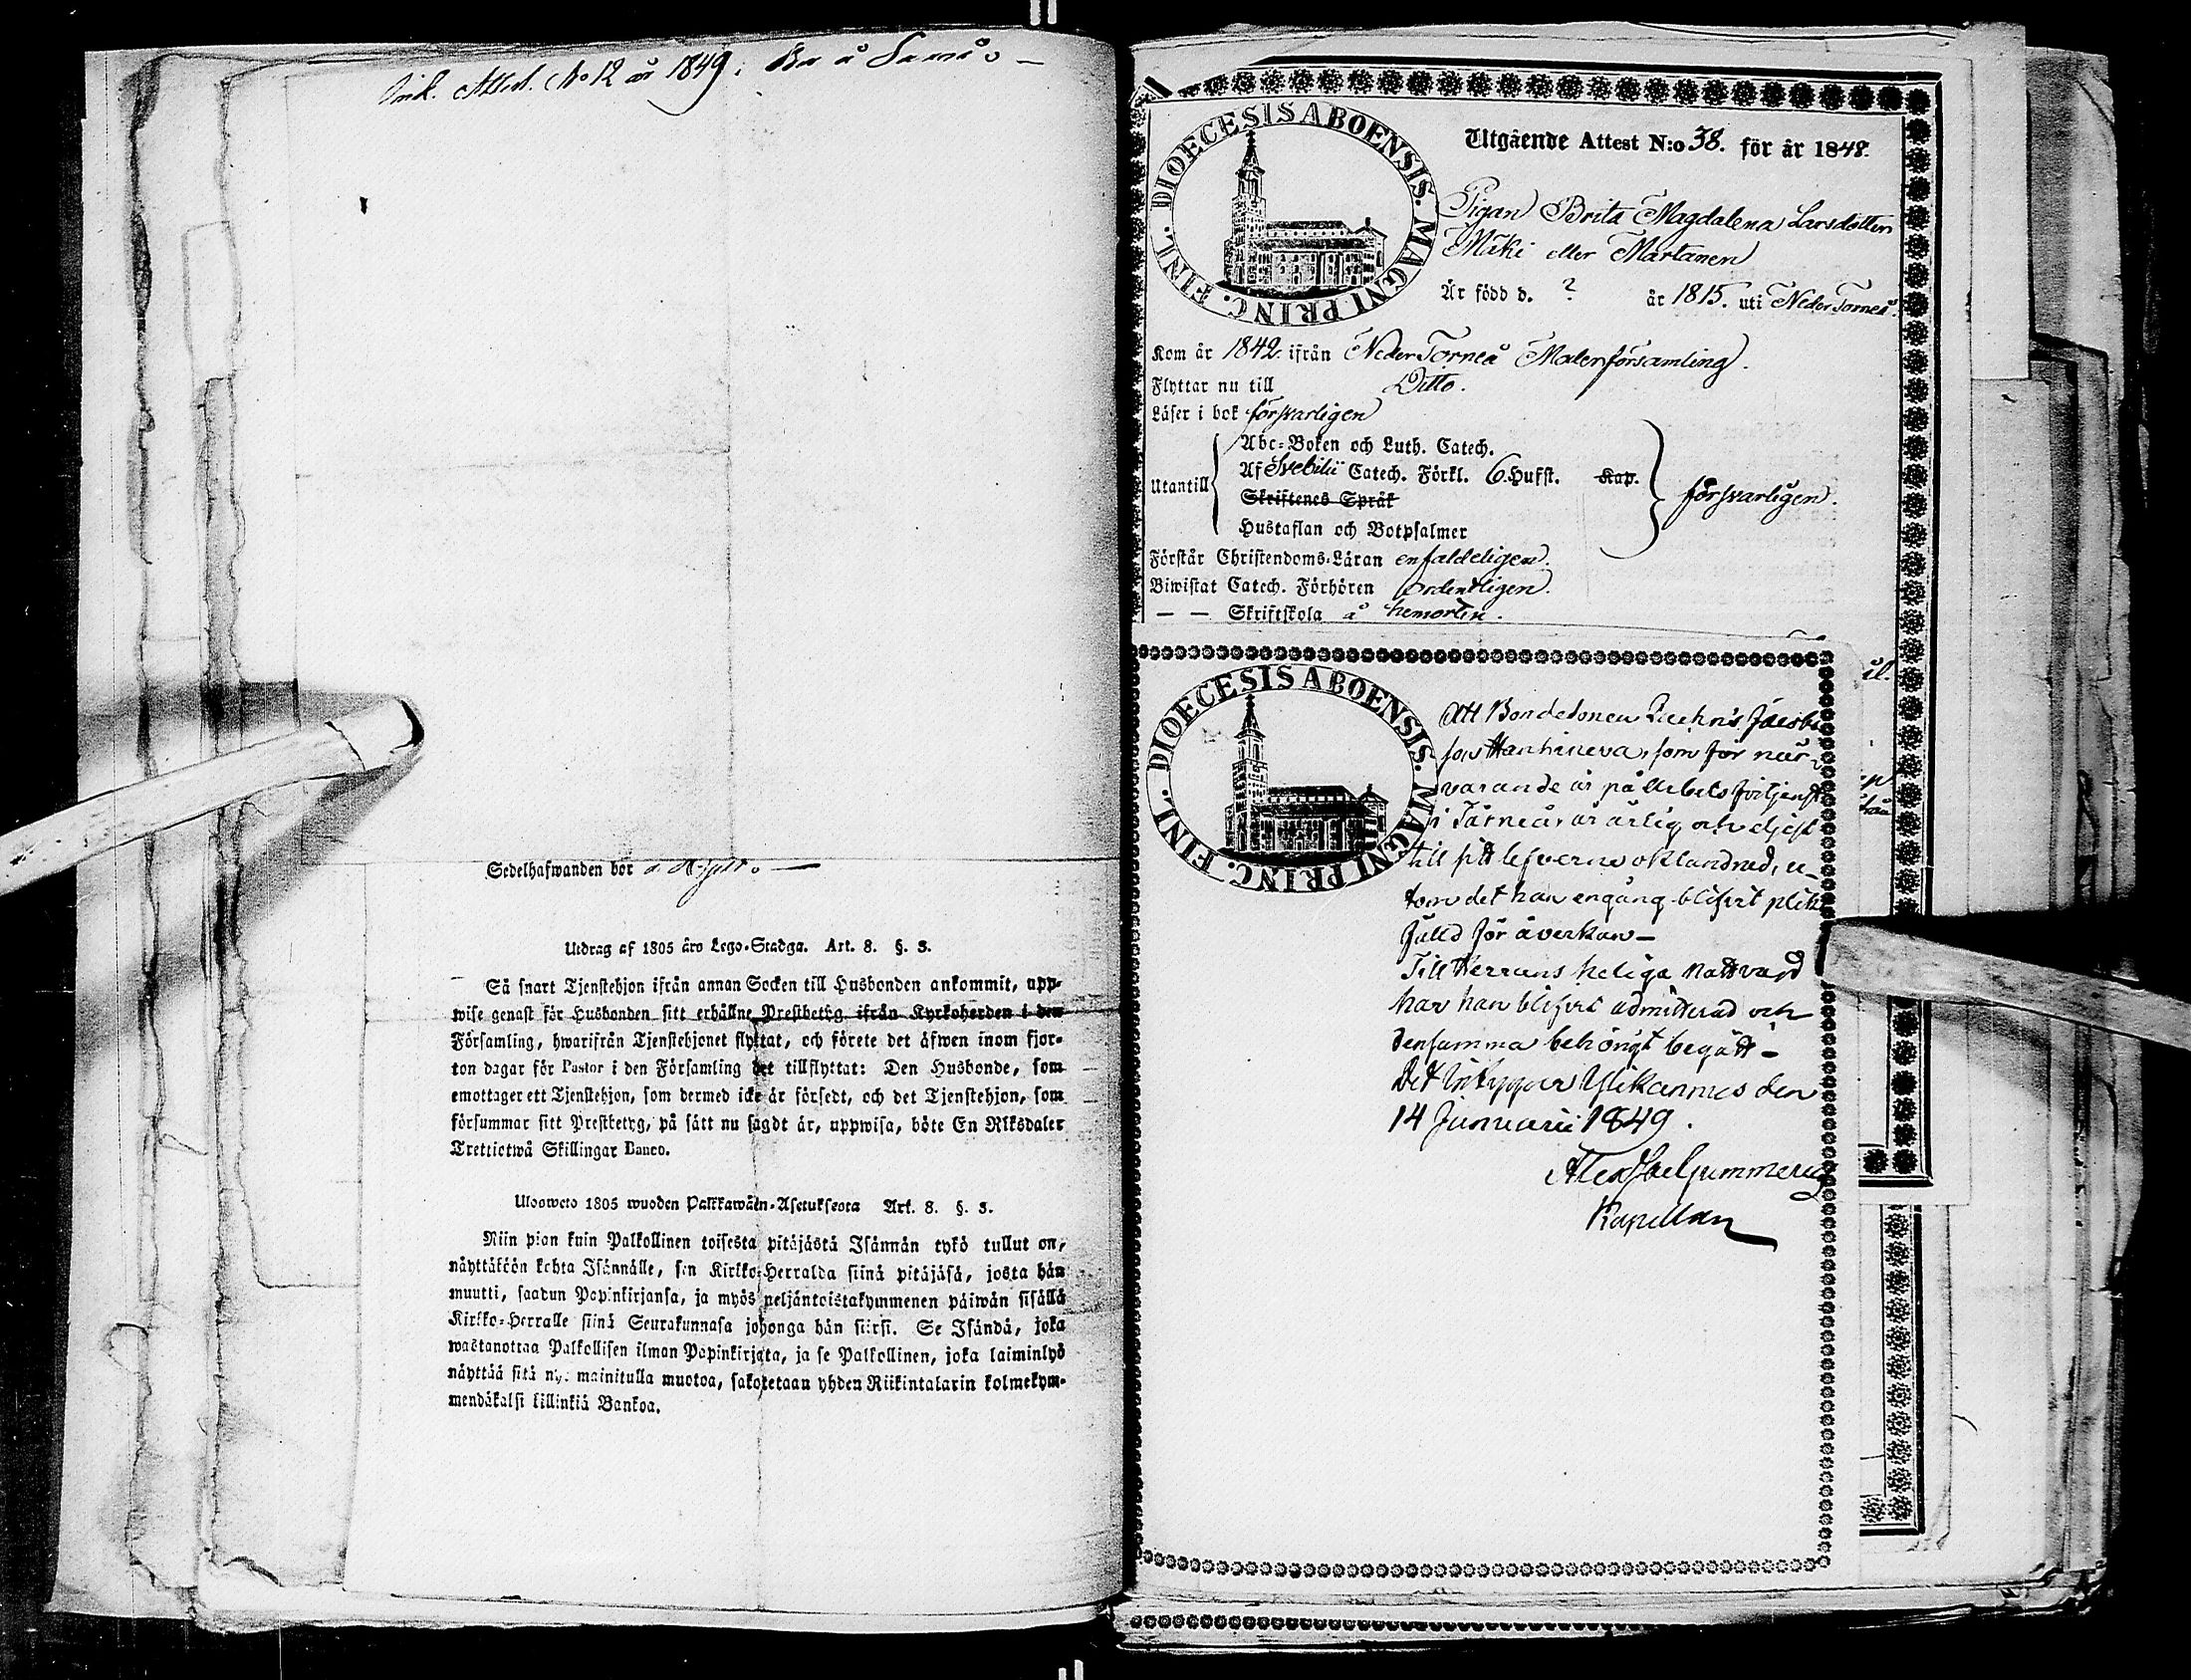 Ink. Attest. No 12 år 1849.
Sedelhafwanden bor å
Utdrag af 1805 års Lego-Stadga. Art. 8. §. 3.
Så snart Tjenstehjon ifrån annan Socken till Husbonden ankommit, upp-
wise genast för Husbonden sitt erhållne Prestbetyg ifrån Kyrkoherden i den
Församling, hwarifrån Tjenstehjonet flyttat, och förete det äfwen inom fjor-
ton dagar för Pastor i den Församling det tillflyttat: Den Husbonde, som
emottager ett Tjenstehjon, som dermed icke är försedt, och det Tjenstehjon, som
försummar sitt Prestbetyg, på sätt nu sagdt är, uppwisa, böte En Riksdaler
Trettiotwå Skillingar Banco.
Ulosweto 1805 wuoden Palkkawäen-Asetuksesta Art. 8. §. 3.
Niin pian kuin Palkollinen toisesta pitäjästä Isännän tykö tullut on,
näyttäköön kohta Isännälle, sen Kirkko-Herralda siinä pitäjäsä, josta hän
muutti, saadun Papinkirjansa, ja myös neljäntoistakymmenen päiwän sisällä
Kirkko-Herralle siinä Seurakunnasa johonga hän siirsi. Se Isändä, joka
wastanottaa Palkollisen ilman Papinkirjata, ja se Palkollinen, joka laiminlyö
näyttää sitä nyt mainitulla muotoa, sakotetaan yhden Riikintalarin kolmekym-
mendäkaksi killinkiä Bankoa.
DIOECESIS ABOENSIS. MAGNI PRINC. FINL.
Utgående Attest N:o 38. för år 1848.
Pigan Brita Magdalena Larsdotter
Mäki eller Martanen
Är född d. ? år 1815. uti Neder Torneå.
Kom år 1842 ifrån Neder Torneå Moderförsamling.
Flyttar nu till Ditto.
Läser i bok försvarligen
Utantill
Abc-Boken och Luth. Catech.
Af Svebilii Catech. Förkl. 6 Hufst. Kap.
Skriftenes Språk
Hustaflan och Botpsalmer
försvarligen.
Förstår Christendoms-Läran enfaldeligen.
Biwistat Catech. Förhören ordentligen.
— — Skriftskola å hemorten.
DIOECESIS ABOENSIS. MAGNI PRINC. FINL.
Att Bondesonen Jacobs
son Hanhineva, som för när-
varande är på arbets förtjenst
i Torneå, är ärlig och
till sitt lefverne oklandrad, u-
tom det han engång blifvit plikt
fälld för åverkan—
Till Herrans heliga Nattvard
har han blifvit admitterad och
densamma behörigt begått—
Det intygar Ylikannus den
14 Januarii 1849.
Gummerus
Kapellan